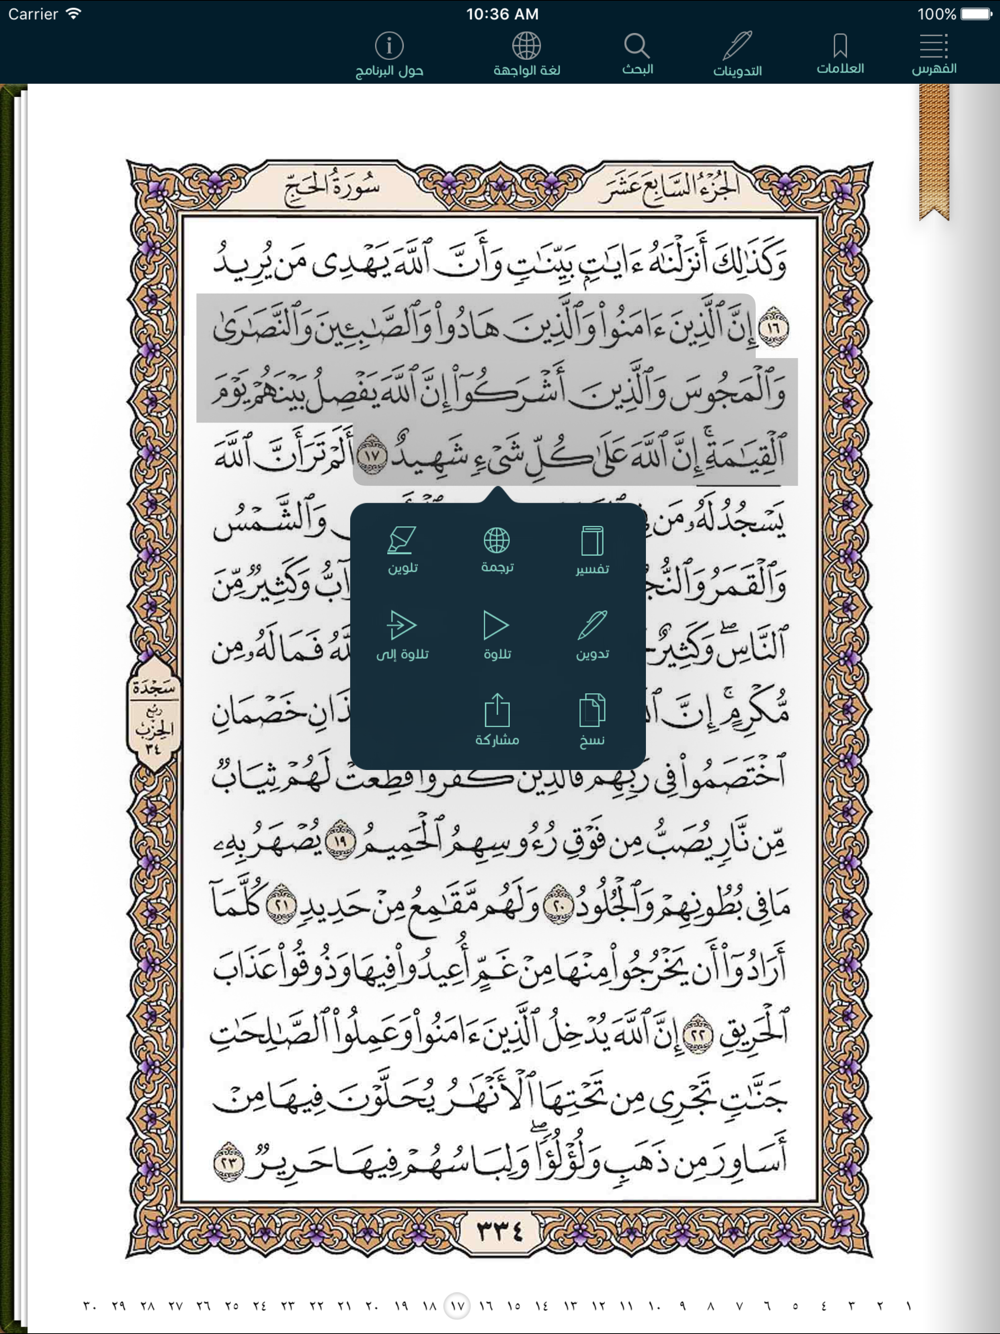 Carrier 10:36 AM 100%
الفهرس العلامات التدوينات البحث لغة الواجهة حول البرنامج
الجزء السابع عشر سورة الحج
وَكَذَٰلِكَ أَنزَلْنَٰهُ ءَايَٰتٍۭ بَيِّنَٰتٍ وَأَنَّ ٱللَّهَ يَهْدِى مَن يُرِيدُ
١٦ إِنَّ ٱلَّذِينَ ءَامَنُوا۟ وَٱلَّذِينَ هَادُوا۟ وَٱلصَّٰبِـِٔينَ وَٱلنَّصَٰرَىٰ
وَٱلْمَجُوسَ وَٱلَّذِينَ أَشْرَكُوٓا۟ إِنَّ ٱللَّهَ يَفْصِلُ بَيْنَهُمْ يَوْمَ
ٱلْقِيَٰمَةِ ۚ إِنَّ ٱللَّهَ عَلَىٰ كُلِّ شَىْءٍ شَهِيدٌ ١٧ أَلَمْ تَرَ أَنَّ ٱللَّهَ
يَسْجُدُ لَهُۥ مَن وَٱلشَّمْسُ
وَٱلْقَمَرُ وَكَثِيرٌ مِّنَ
ٱلنَّاسِ ۖ وَكَثِيرٌ فَمَا لَهُۥ مِن
مُّكْرِمٍ ۚ إِنَّ خَصْمَانِ
ٱخْتَصَمُوا۟ فِى رَبِّهِمْ فَٱلَّذِينَ كَفَرُوا۟ قُطِّعَتْ لَهُمْ ثِيَابٌ
مِّن نَّارٍ يُصَبُّ مِن فَوْقِ رُءُوسِهِمُ ٱلْحَمِيمُ ١٩ يُصْهَرُ بِهِۦ
مَا فِى بُطُونِهِمْ وَٱلْجُلُودُ ٢٠ وَلَهُم مَّقَٰمِعُ مِنْ حَدِيدٍ ٢١ كُلَّمَآ
أَرَادُوٓا۟ أَن يَخْرُجُوا۟ مِنْهَا مِنْ غَمٍّ أُعِيدُوا۟ فِيهَا وَذُوقُوا۟ عَذَابَ
ٱلْحَرِيقِ ٢٢ إِنَّ ٱللَّهَ يُدْخِلُ ٱلَّذِينَ ءَامَنُوا۟ وَعَمِلُوا۟ ٱلصَّٰلِحَٰتِ
جَنَّٰتٍ تَجْرِى مِن تَحْتِهَا ٱلْأَنْهَٰرُ يُحَلَّوْنَ فِيهَا مِنْ
أَسَاوِرَ مِن ذَهَبٍ وَلُؤْلُؤًا ۖ وَلِبَاسُهُمْ فِيهَا حَرِيرٌ ٢٣
تفسير ترجمة تلوين
تدوين تلاوة تلاوة إلى
نسخ مشاركة
سجدة
ربع
الحزب
٣٤
٣٣٤
١ ٢ ٣ ٤ ٥ ٦ ٧ ٨ ٩ ١٠ ١١ ١٢ ١٣ ١٤ ١٥ ١٦ ١٧ ١٨ ١٩ ٢٠ ٢١ ٢٢ ٢٣ ٢٤ ٢٥ ٢٦ ٢٧ ٢٨ ٢٩ ٣٠